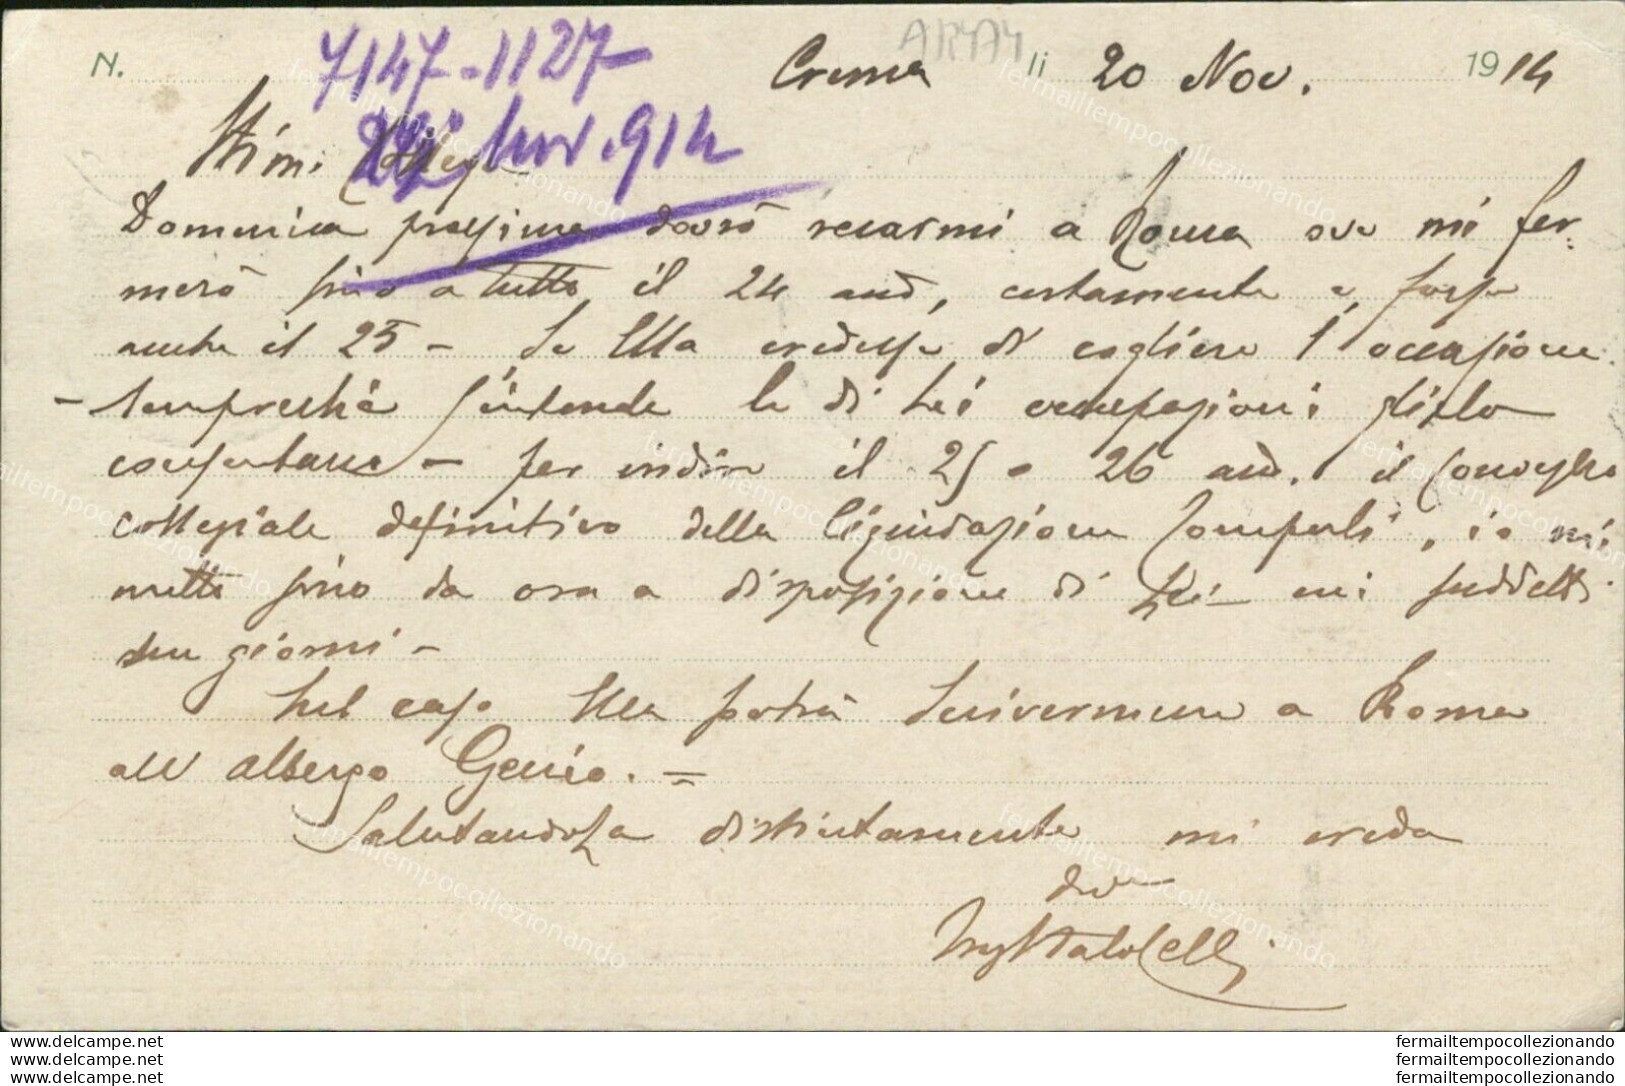 N. 7147-1127 Crema li 20 Nov. 1914
AR474
Stim. Colleg nov. 914
Domenica prossima dovrò recarmi a Roma ove mi fer-
merò fino a tutto il 24 and, certamente e forse
anche il 25 - Se Ella credesse di cogliere l'occasione
- sempreché s'intende le di Lei occupazioni glielo
consentano - per indire il 25 o 26 and. il Convegno
collegiale definitivo della liquidazione , io mi
metto sino da ora a disposizione di Lei nei suddetti
due giorni -
Nel caso Ella potrà scrivermene a Roma
all'albergo Genio. =
Salutandola distintamente mi creda
dev
Ing
www.delcampe.net
www.delcampe.net
www.delcampe.net
fermailtempocollezionando
fermailtempocollezionando
fermailtempocollezionando